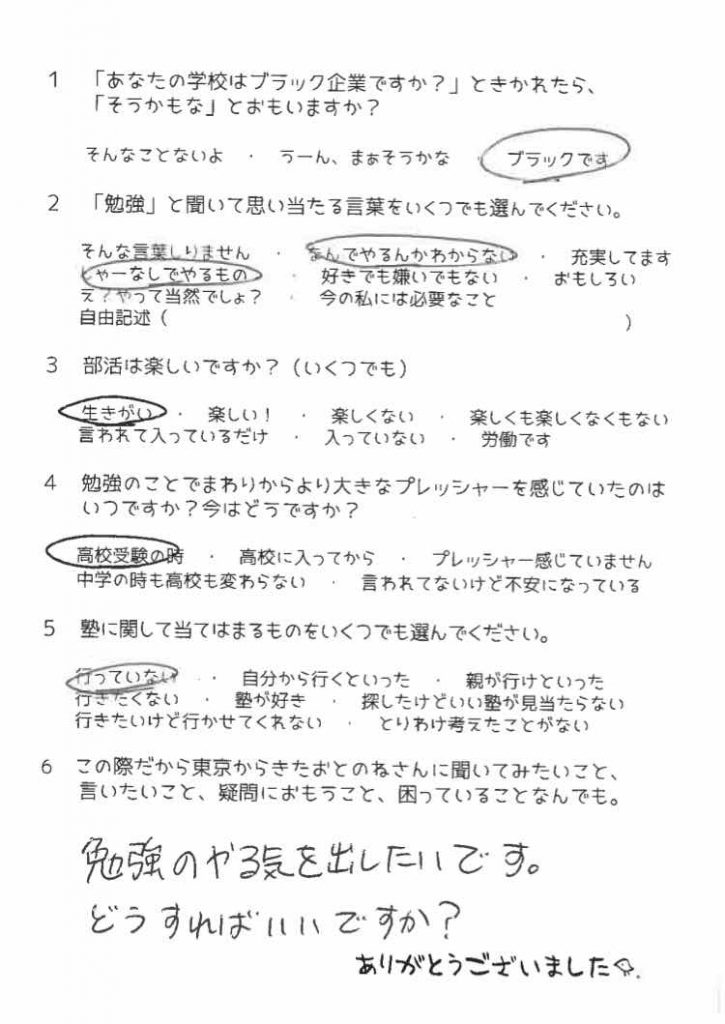 1 「あなたの学校はブラック企業ですか？」ときかれたら、
「そうかもな」とおもいますか？
そんなことないよ ・ うーん、まぁそうかな ・ ブラックです
2 「勉強」と聞いて思い当たる言葉をいくつでも選んでください。
そんな言葉しりません ・ なんでやるんかわからない ・ 充実してます
しゃーなしでやるもの ・ 好きでも嫌いでもない ・ おもしろい
え？やって当然でしょ？ ・ 今の私には必要なこと
自由記述（ ）
3 部活は楽しいですか？（いくつでも）
生きがい ・ 楽しい！ ・ 楽しくない ・ 楽しくも楽しくなくもない
言われて入っているだけ ・ 入っていない ・ 労働です
4 勉強のことでまわりからより大きなプレッシャーを感じていたのは
いつですか？今はどうですか？
高校受験の時 ・ 高校に入ってから ・ プレッシャー感じていません
中学の時も高校も変わらない ・ 言われてないけど不安になっている
5 塾に関して当てはまるものをいくつでも選んでください。
行っていない ・ 自分から行くといった ・ 親が行けといった
行きたくない ・ 塾が好き ・ 探したけどいい塾が見当たらない
行きたいけど行かせてくれない ・ とりわけ考えたことがない
6 この際だから東京からきたおとのねさんに聞いてみたいこと、
言いたいこと、疑問におもうこと、困っていることなんでも。
勉強のやる気を出したいです。
どうすればいいですか？
ありがとうございました